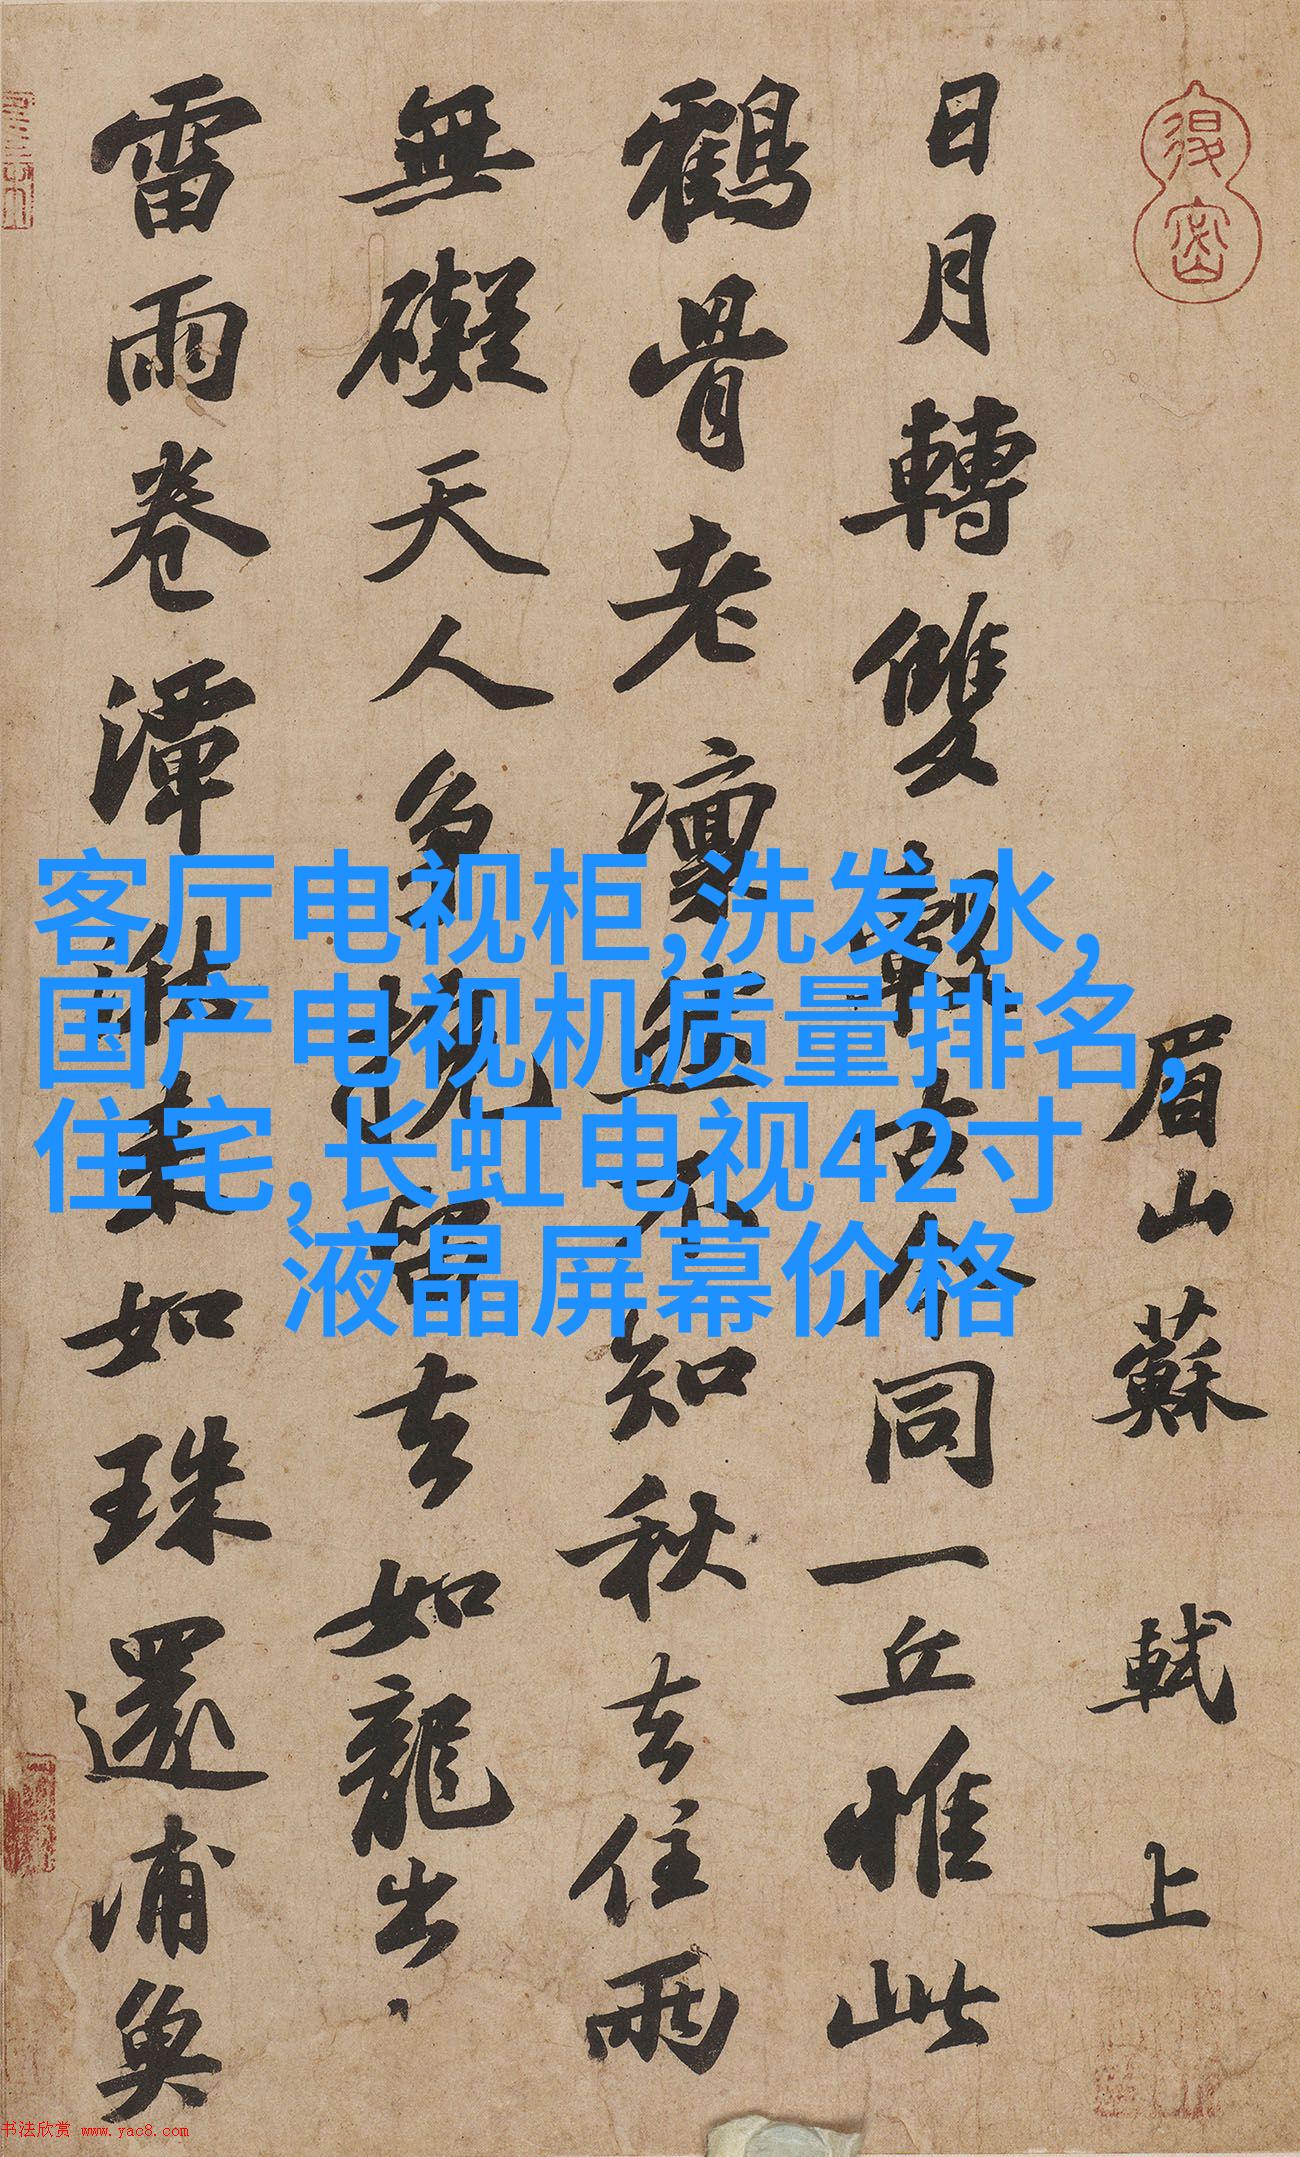 眉山蘇軾上
日月轉雙轂古今同一丘惟此
鶴骨老凜然不知秋去住兩
無礙天人爭挽留去如龍出
雷雨卷潭湫来如珠還浦魚
客厅电视柜,洗发水,
国产电视机质量排名,
住宅,长虹电视42寸
液晶屏幕价格
书法欣赏 www.yac8.com